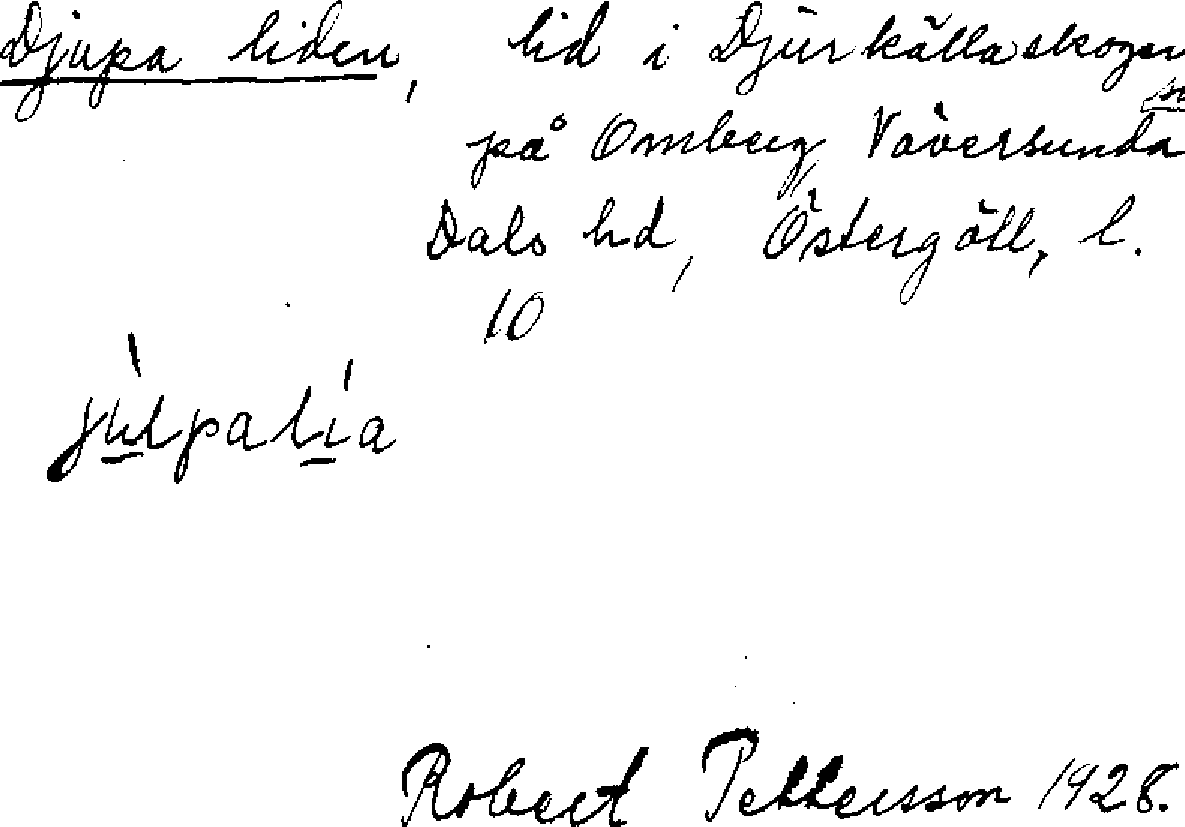 Djupa liden, lid i Djurkällaskogen
på Omberg, Väversunda sn
Dals hd, Östergötl. l.
10
Robert Pettersson 1928.